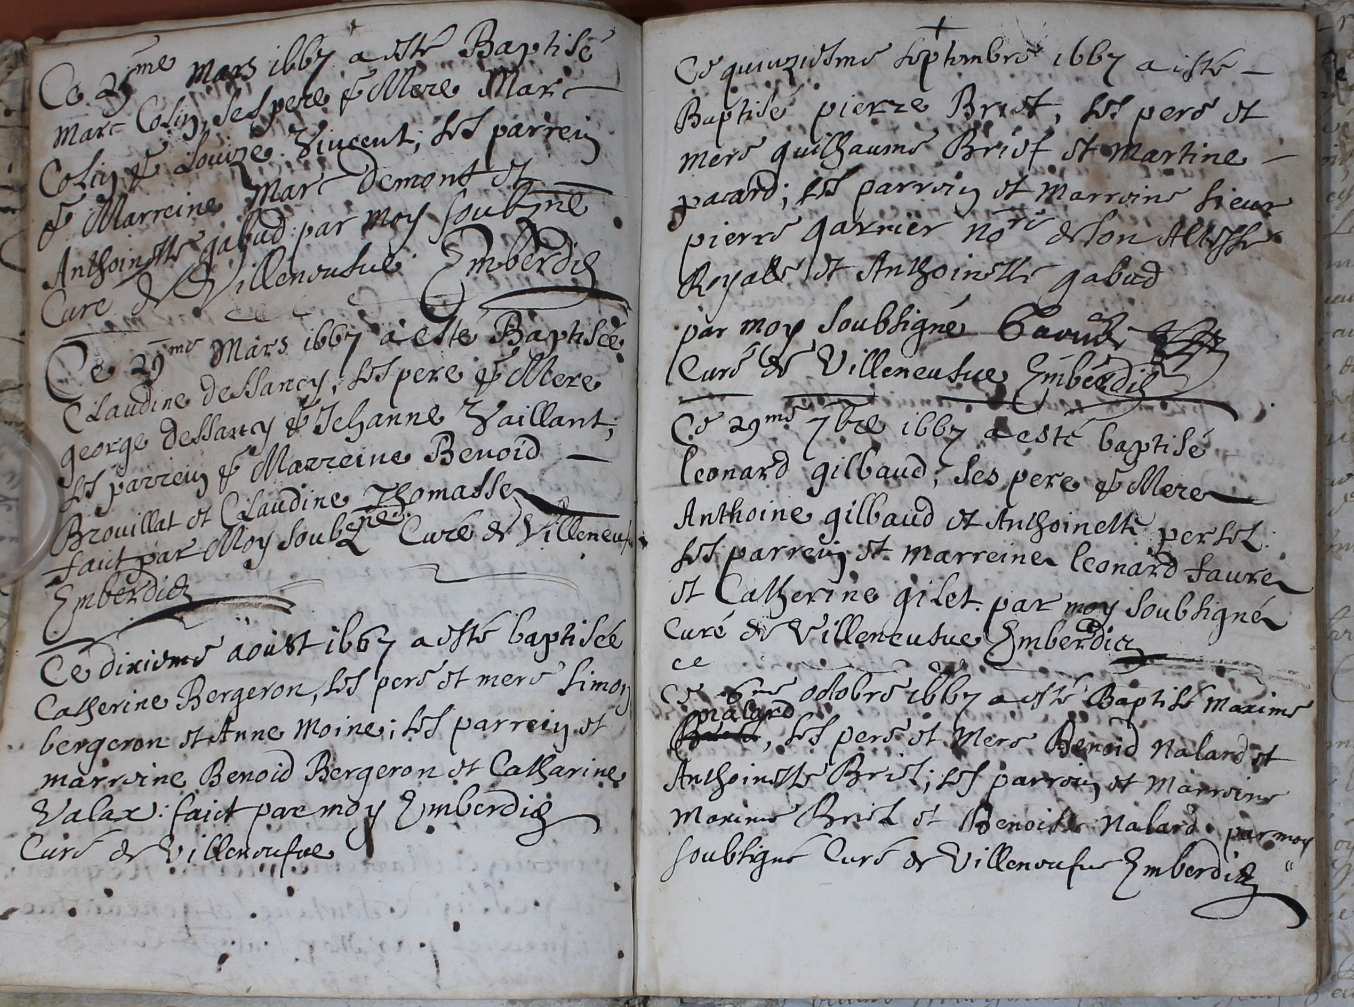 Ce 25me Mars 1667 a esté Baptisé
Marc Colin, ses pere & Mere Marc
Colin & Louize Vincent; ses parrein
& Marreine Marc demont et
Anthoinette gabud par moy soubzne
Curé de Villeneufue Emberdiz
Ce 29me Mars 1667 a esté Baptisée
Claudine dessarcy, ses pere & Mere
george dessarcy & Jehanne Vaillant;
ses parrein & Marreine Benoid
Brouillat et Claudine Thomasse
faict par Moy soubzned Curé de Villeneuf
Emberdiz
Ce dixieme aoust 1667 a esté baptisée
Catherine Bergeron, ses pere et mere simon
bergeron et Anne moine; ses parrein et
marreine Benoid Bergeron et Catharine
Valax: faict par moy Emberdiz
Curé de Villeneufue
Ce quinziesme septembre 1667 a esté
Baptisé pierre Briet, ses pere et
mere guilhaume Briet et martine
pacard; ses parrein et marreine sieur
pierre garnier nore de son Altesse
Royalle et Anthoinette gabud
par moy soubsigné
Curé de Villeneufue Emberdiz
Ce 29me 7bre 1667 a esté baptisé
leonard gilbaud, ses pere & Mere
Anthoine gilbaud et Anthoinette pertet
ses parrein et marreine leonard faure
et Catherine gilet par moy soubsigné
Curé de Villeneufue Emberdiz
ce
Ce 6me octobre 1667 a esté Baptisé maxime
nalard
, ses pere et Mere Benoid nalard et
Anthoinette Briet; ses parrein et Marreine
maxime Briet et Benoite nalard par moy
soubsigné Curé de Villeneufue Emberdiz